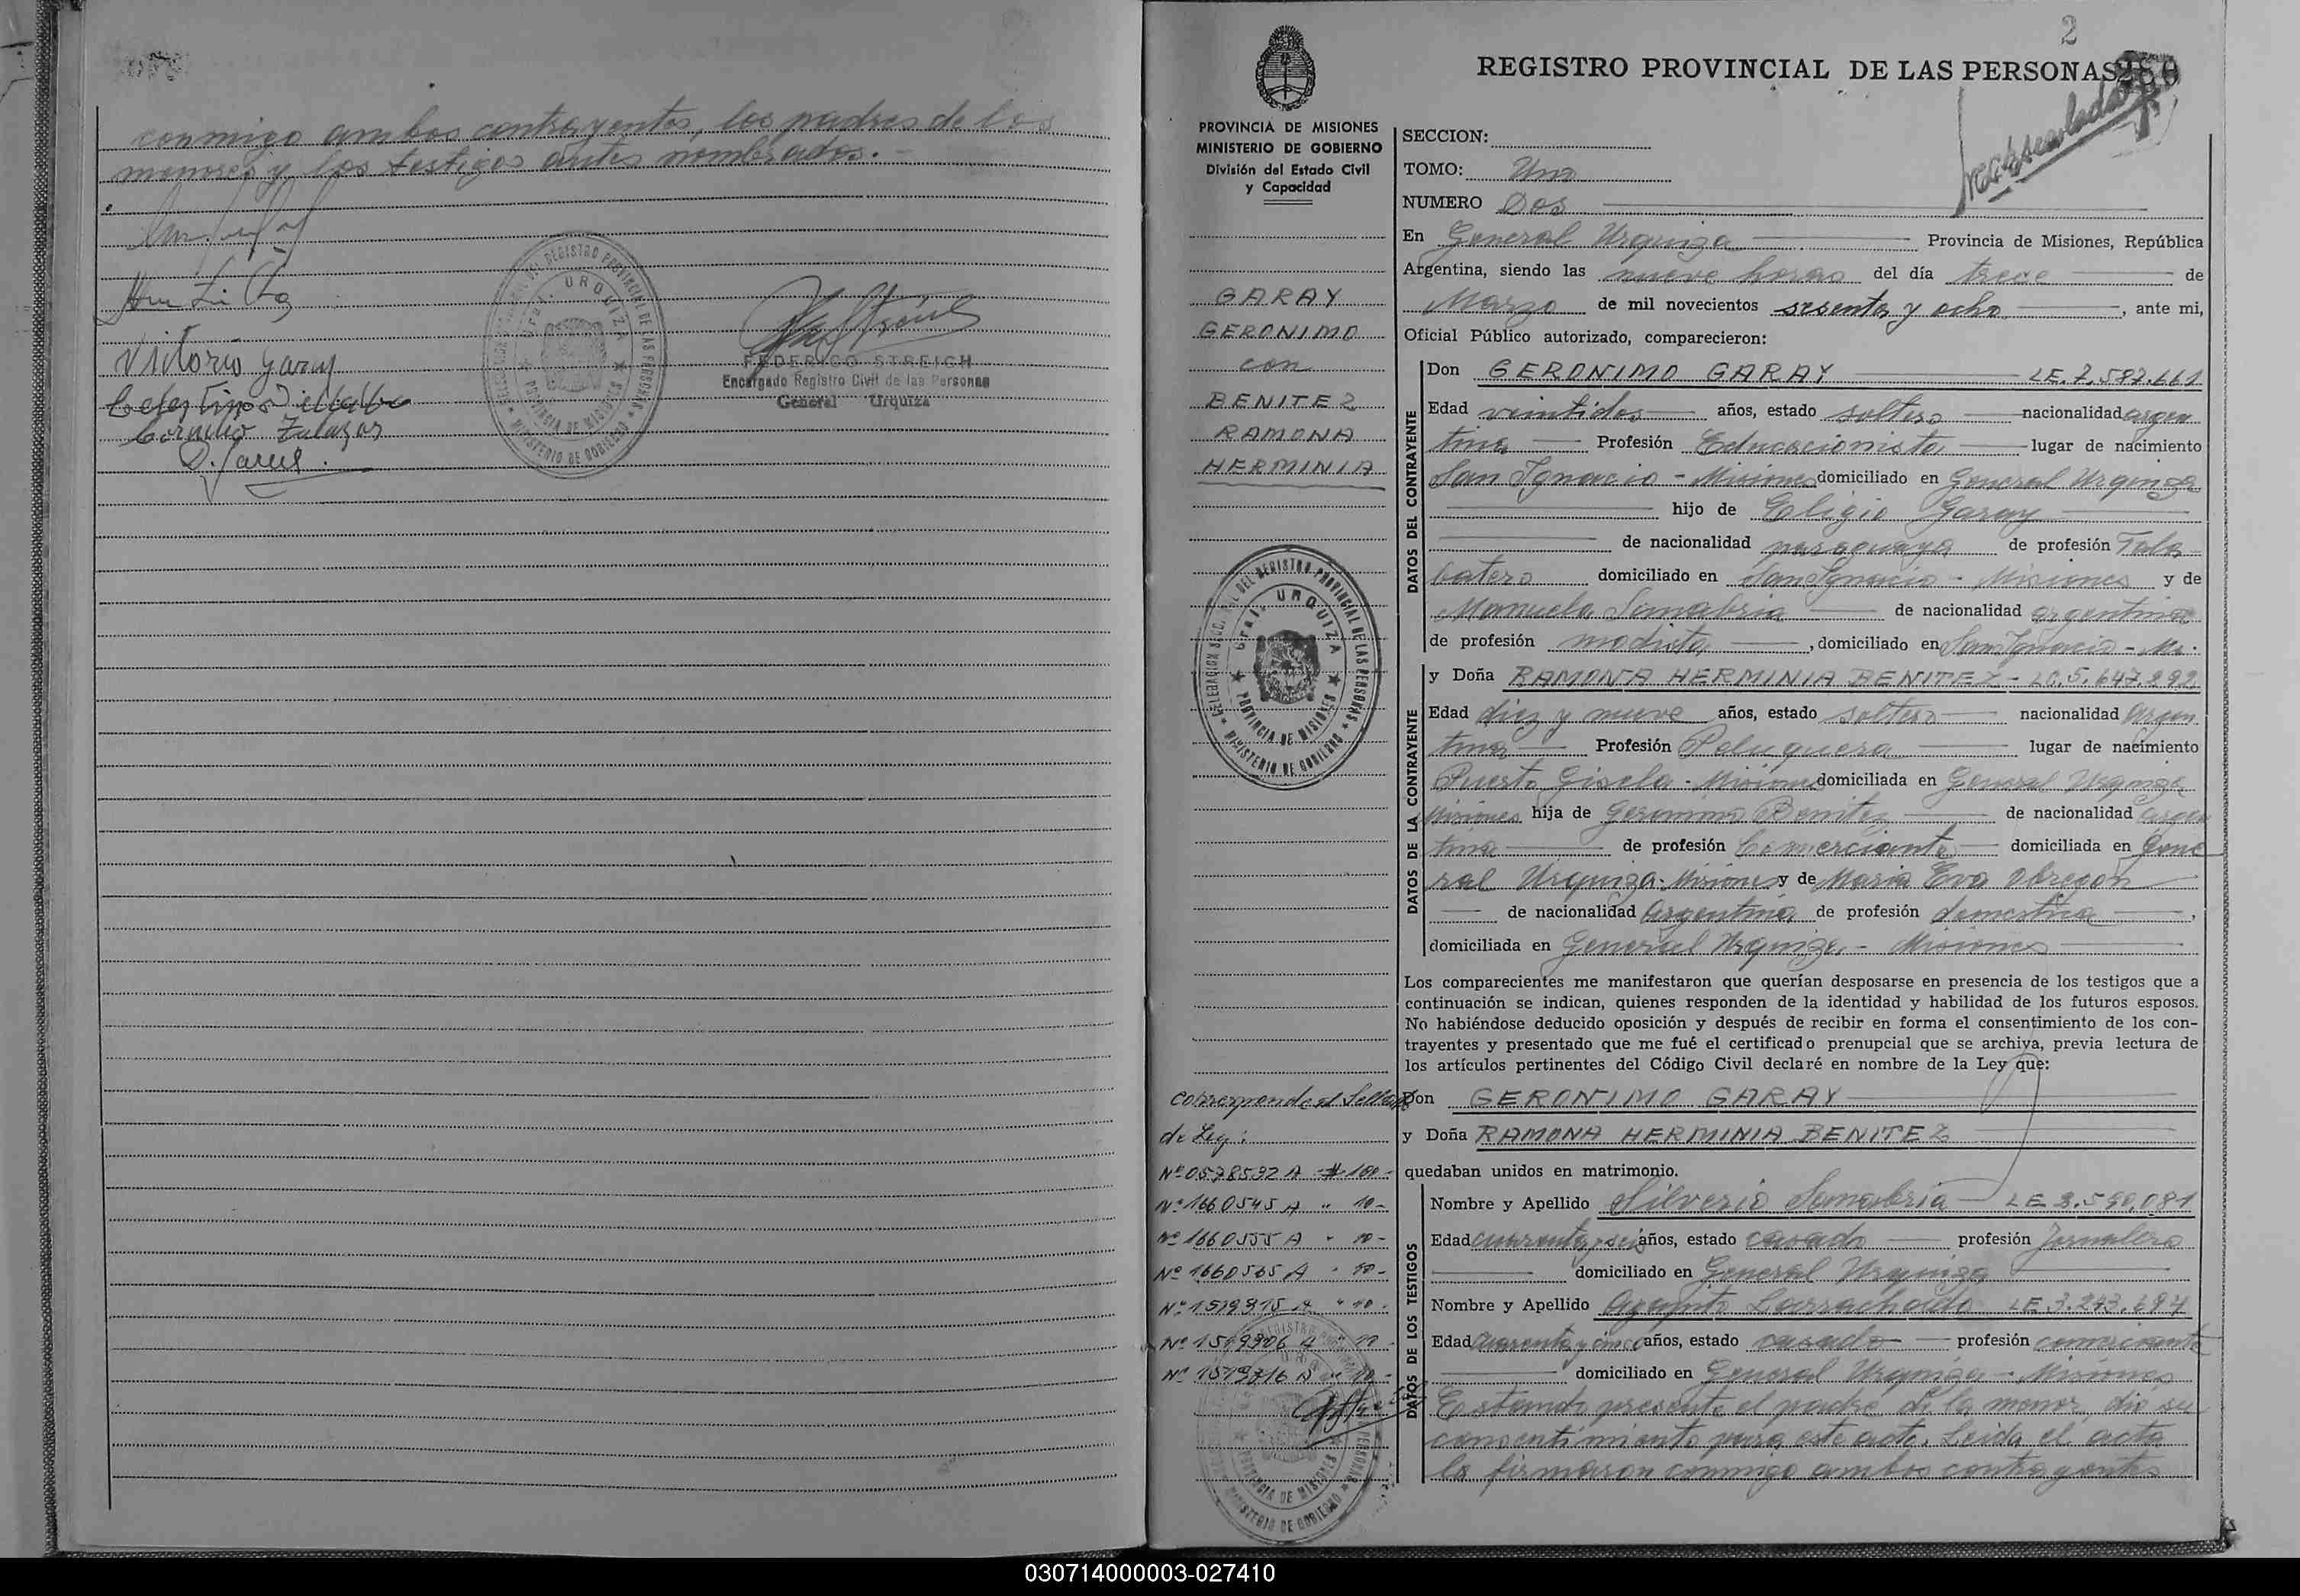 conmigo ambos contrayentes, los padres de los
menores y los testigos antes nombrados.-
Vitorio Garay
Cornelio Zalazar
FEDERICO STREICH
Encargado Registro Civil de las Personas
General Urquiza
DEL REGISTRO PROVINCIAL DE LAS PERSONAS
Gral. URQUIZA
PROVINCIA DE MISIONES
MINISTERIO DE GOBIERNO
2
REGISTRO PROVINCIAL DE LAS PERSONAS
PROVINCIA DE MISIONES
MINISTERIO DE GOBIERNO
División del Estado Civil
y Capacidad
GARAY
GERONIMO
con
BENITEZ
RAMONA
HERMINIA
DEL REGISTRO PROVINCIAL DE LAS PERSONAS
Gral. URQUIZA
PROVINCIA DE MISIONES
MINISTERIO DE GOBIERNO
corresponde el Sellado
de Ley:
Nº 0578532 A # 100-
Nº 1660545 A " 10-
Nº 1660555 A " 10-
Nº 1660565 A " 10-
SECCION:
TOMO: Uno
NUMERO Dos
En General Urquiza Provincia de Misiones, República
Argentina, siendo las nueve horas del día trece de
Marzo de mil novecientos sesenta y ocho, ante mi,
Oficial Público autorizado, comparecieron:
DATOS DEL CONTRAYENTE
Don GERONIMO GARAY LE. 7.587.661
Edad veintidos años, estado soltero nacionalidad argen
tina Profesión Educacionista lugar de nacimiento
San Ignacio - Misiones domiciliado en General Urquiza
hijo de Eligio Garay
de nacionalidad paraguaya de profesión Tala
batero domiciliado en San Ignacio - Misiones y de
Manuela Sanabria de nacionalidad argentina
de profesión modista, domiciliado en San Ignacio - Ms.
DATOS DE LA CONTRAYENTE
y Doña RAMONA HERMINIA BENITEZ - LC. 5.647.292
Edad diez y nueve años, estado soltera nacionalidad Argen
tina Profesión Peluquera lugar de nacimiento
Puerto Gisela - Misiones domiciliada en General Urquiza
Misiones hija de Geronimo Benitez de nacionalidad argen
tina de profesión Comerciante domiciliada en Gene
ral Urquiza - Misiones y de Maria Eva Obregon
de nacionalidad Argentina de profesión domestica,
domiciliada en General Urquiza - Misiones
Los comparecientes me manifestaron que querían desposarse en presencia de los testigos que a
continuación se indican, quienes responden de la identidad y habilidad de los futuros esposos.
No habiéndose deducido oposición y después de recibir en forma el consentimiento de los con-
trayentes y presentado que me fué el certificado prenupcial que se archiva, previa lectura de
los artículos pertinentes del Código Civil declaré en nombre de la Ley que:
Don GERONIMO GARAY
y Doña RAMONA HERMINIA BENITEZ
quedaban unidos en matrimonio.
DATOS DE LOS TESTIGOS
Nombre y Apellido Silverio Sanabria LE 3.590.081
Edad cuarenta y seis años, estado casado profesión Jornalero
domiciliado en General Urquiza
Nombre y Apellido Agapito LE 3.293.694
Edad cuarenta y cinco años, estado casado profesión comerciante
domiciliado en General Urquiza - Misiones
Estando presente el padre de la menor, dió su
consentimiento para este acto. Leida el acta
la firmaron conmigo ambos contrayentes
030714000003-027410